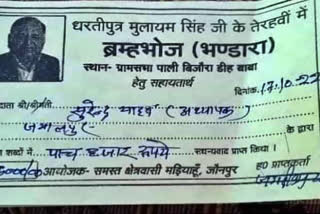 धरतीपुत्र मुलायम सिंह जी के तेरहवीं में
ब्रम्हभोज (भण्डारा)
स्थान- ग्रामसभा पाली बिजौरा डीह बाबा
हेतु सहायतार्थ
दिनांक. 17.10.22
दाता श्री/श्रीमती सुरेन्द्र यादव (अध्यापक)
के द्वारा
शब्दों में पाच हजार रूपये सधन्यवाद प्राप्त किया।
5000/00 आयोजक- समस्त क्षेत्रवासी मड़ियाहूँ, जौनपुर
ह0 प्राप्तकर्ता